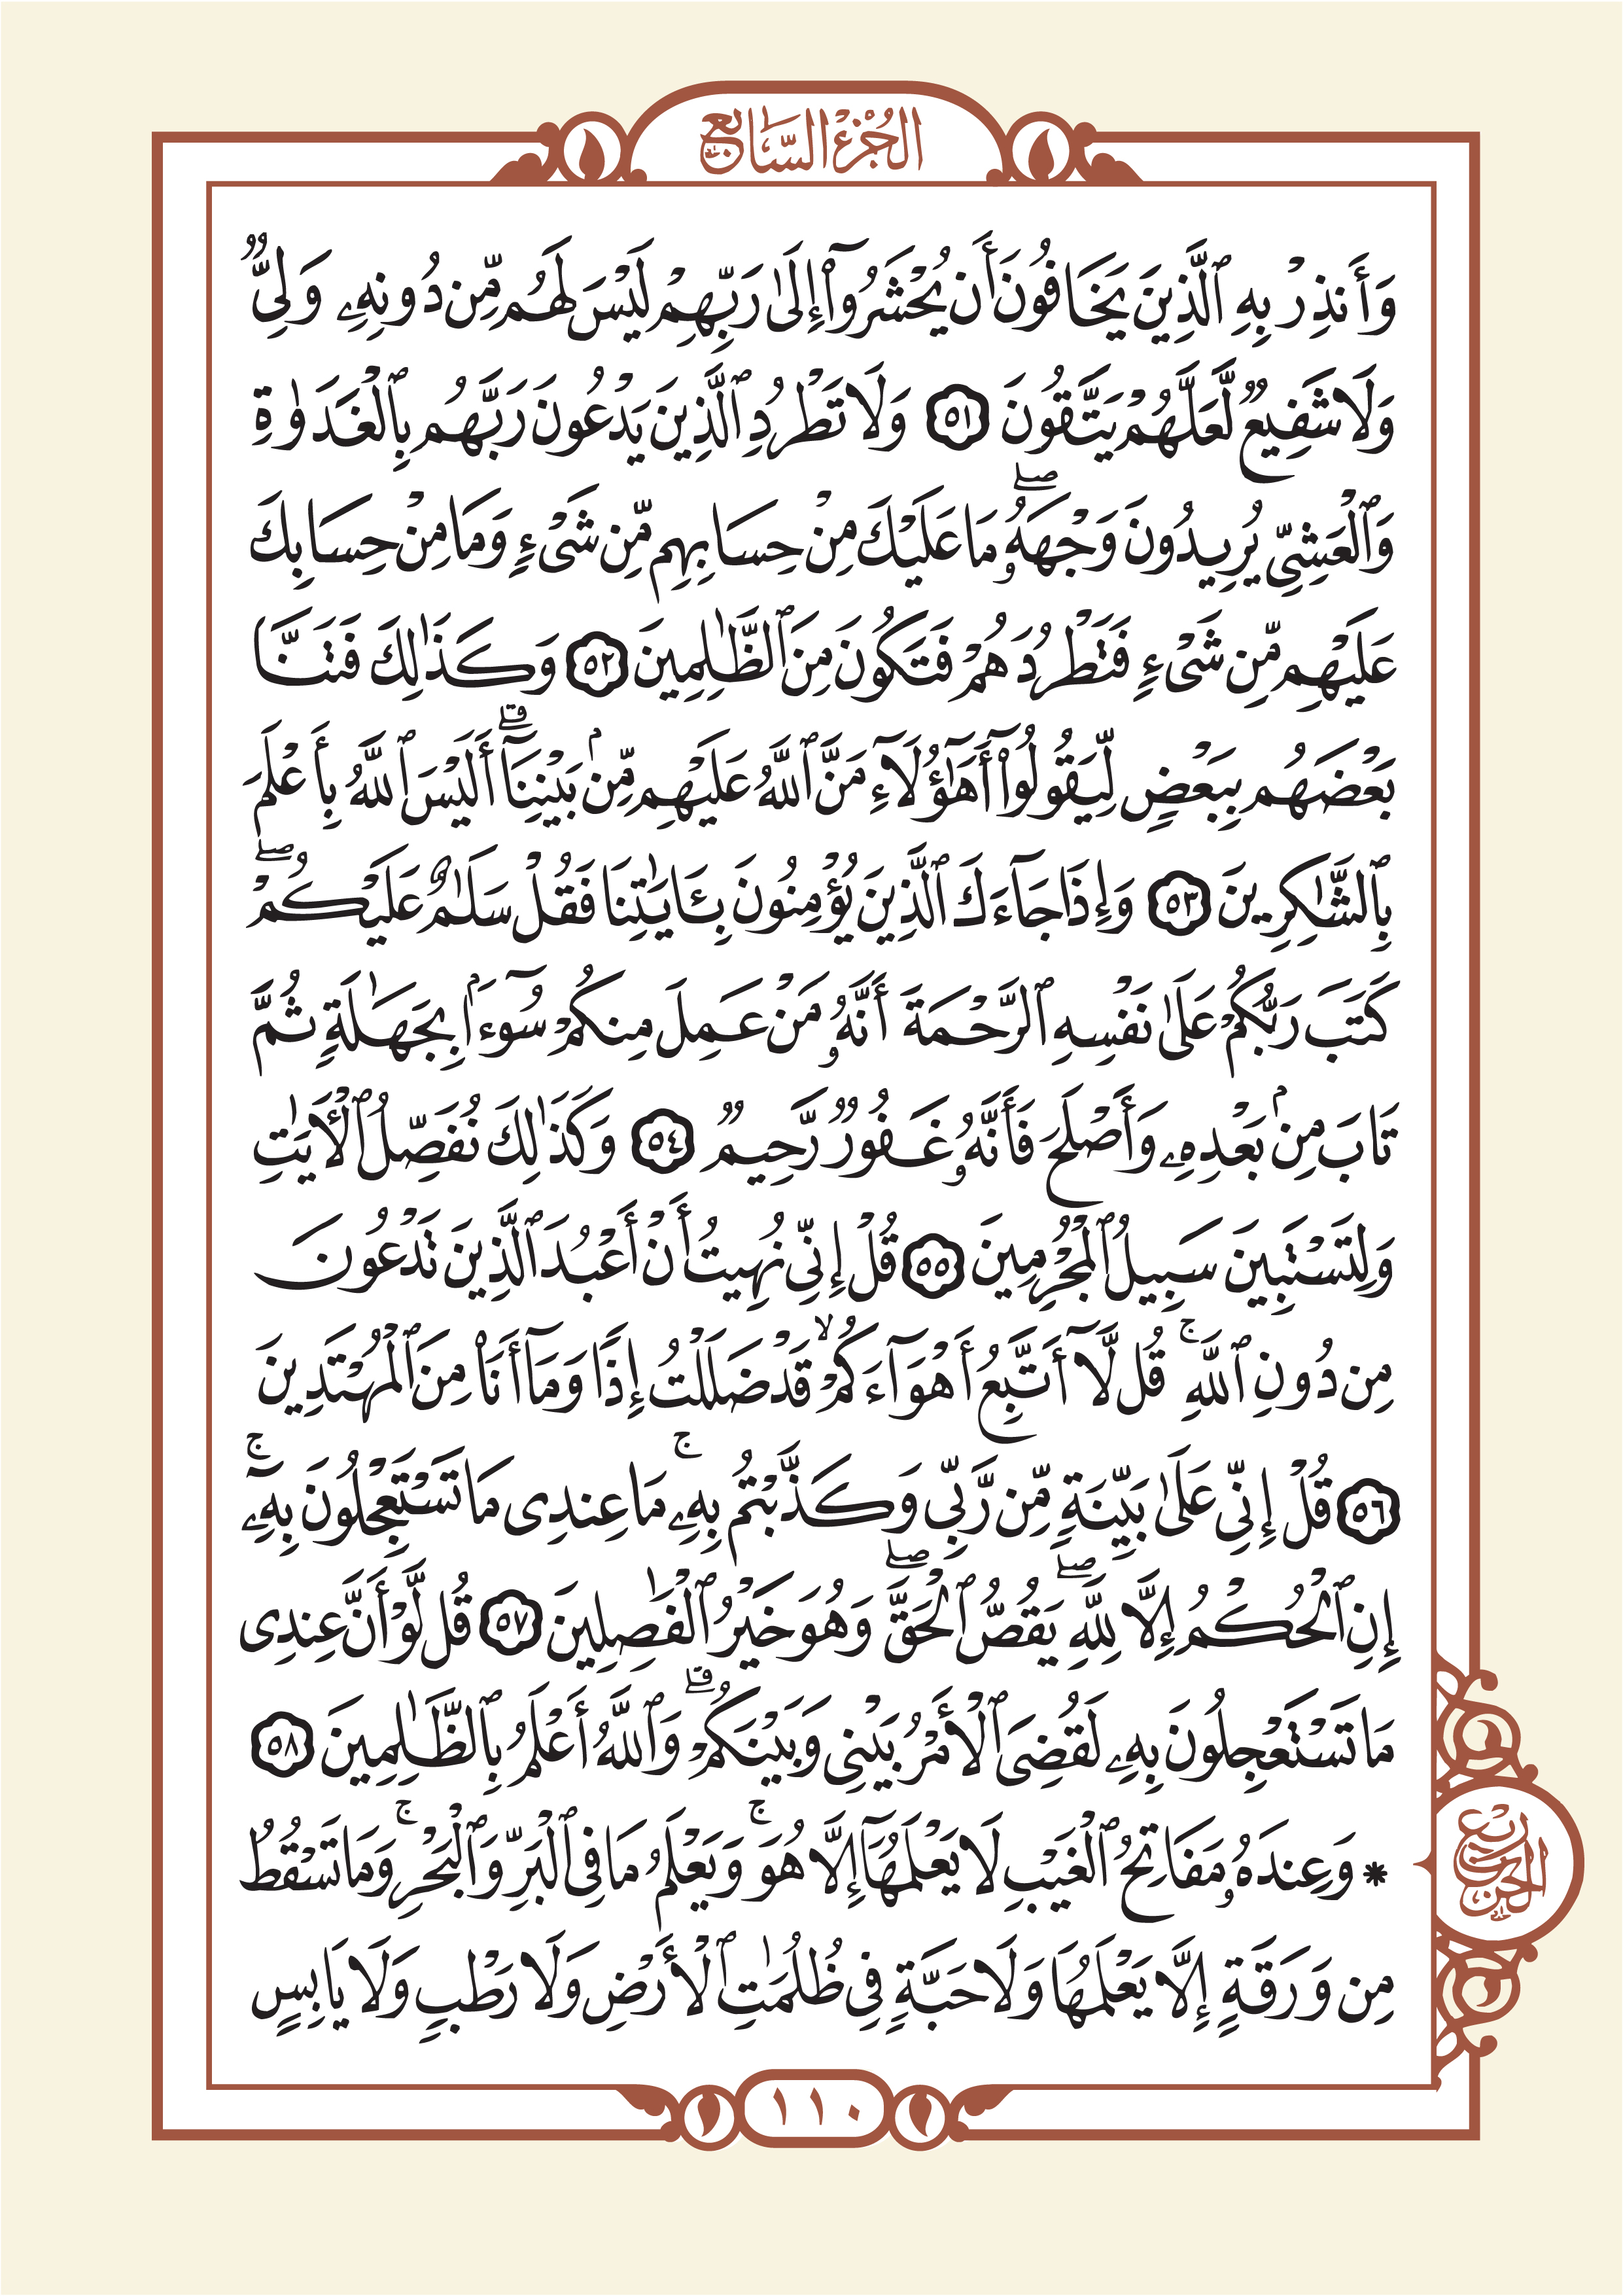 الجُزْءُ السَّابِعُ
وَأَنذِرْ بِهِ ٱلَّذِينَ يَخَافُونَ أَن يُحْشَرُوٓا۟ إِلَىٰ رَبِّهِمْ لَيْسَ لَهُم مِّن دُونِهِۦ وَلِىٌّ
وَلَا شَفِيعٌ لَّعَلَّهُمْ يَتَّقُونَ ٥١ وَلَا تَطْرُدِ ٱلَّذِينَ يَدْعُونَ رَبَّهُم بِٱلْغَدَوٰةِ
وَٱلْعَشِىِّ يُرِيدُونَ وَجْهَهُۥ ۖ مَا عَلَيْكَ مِنْ حِسَابِهِم مِّن شَىْءٍ وَمَا مِنْ حِسَابِكَ
عَلَيْهِم مِّن شَىْءٍ فَتَطْرُدَهُمْ فَتَكُونَ مِنَ ٱلظَّـٰلِمِينَ ٥٢ وَكَذَٰلِكَ فَتَنَّا
بَعْضَهُم بِبَعْضٍ لِّيَقُولُوٓا۟ أَهَـٰٓؤُلَآءِ مَنَّ ٱللَّهُ عَلَيْهِم مِّنۢ بَيْنِنَآ ۗ أَلَيْسَ ٱللَّهُ بِأَعْلَمَ
بِٱلشَّـٰكِرِينَ ٥٣ وَإِذَا جَآءَكَ ٱلَّذِينَ يُؤْمِنُونَ بِـَٔايَـٰتِنَا فَقُلْ سَلَـٰمٌ عَلَيْكُمْ ۖ
كَتَبَ رَبُّكُمْ عَلَىٰ نَفْسِهِ ٱلرَّحْمَةَ أَنَّهُۥ مَنْ عَمِلَ مِنكُمْ سُوٓءًۢا بِجَهَـٰلَةٍ ثُمَّ
تَابَ مِنۢ بَعْدِهِۦ وَأَصْلَحَ فَأَنَّهُۥ غَفُورٌ رَّحِيمٌ ٥٤ وَكَذَٰلِكَ نُفَصِّلُ ٱلْـَٔايَـٰتِ
وَلِتَسْتَبِينَ سَبِيلُ ٱلْمُجْرِمِينَ ٥٥ قُلْ إِنِّى نُهِيتُ أَنْ أَعْبُدَ ٱلَّذِينَ تَدْعُونَ
مِن دُونِ ٱللَّهِ ۚ قُل لَّآ أَتَّبِعُ أَهْوَآءَكُمْ ۙ قَدْ ضَلَلْتُ إِذًا وَمَآ أَنَا۠ مِنَ ٱلْمُهْتَدِينَ
٥٦ قُلْ إِنِّى عَلَىٰ بَيِّنَةٍ مِّن رَّبِّى وَكَذَّبْتُم بِهِۦ ۚ مَا عِندِى مَا تَسْتَعْجِلُونَ بِهِۦٓ ۚ
إِنِ ٱلْحُكْمُ إِلَّا لِلَّهِ ۖ يَقُصُّ ٱلْحَقَّ ۖ وَهُوَ خَيْرُ ٱلْفَـٰصِلِينَ ٥٧ قُل لَّوْ أَنَّ عِندِى
مَا تَسْتَعْجِلُونَ بِهِۦ لَقُضِىَ ٱلْأَمْرُ بَيْنِى وَبَيْنَكُمْ ۗ وَٱللَّهُ أَعْلَمُ بِٱلظَّـٰلِمِينَ ٥٨
* وَعِندَهُۥ مَفَاتِحُ ٱلْغَيْبِ لَا يَعْلَمُهَآ إِلَّا هُوَ ۚ وَيَعْلَمُ مَا فِى ٱلْبَرِّ وَٱلْبَحْرِ ۚ وَمَا تَسْقُطُ
مِن وَرَقَةٍ إِلَّا يَعْلَمُهَا وَلَا حَبَّةٍ فِى ظُلُمَـٰتِ ٱلْأَرْضِ وَلَا رَطْبٍ وَلَا يَابِسٍ
ربع الحزب
١١٠